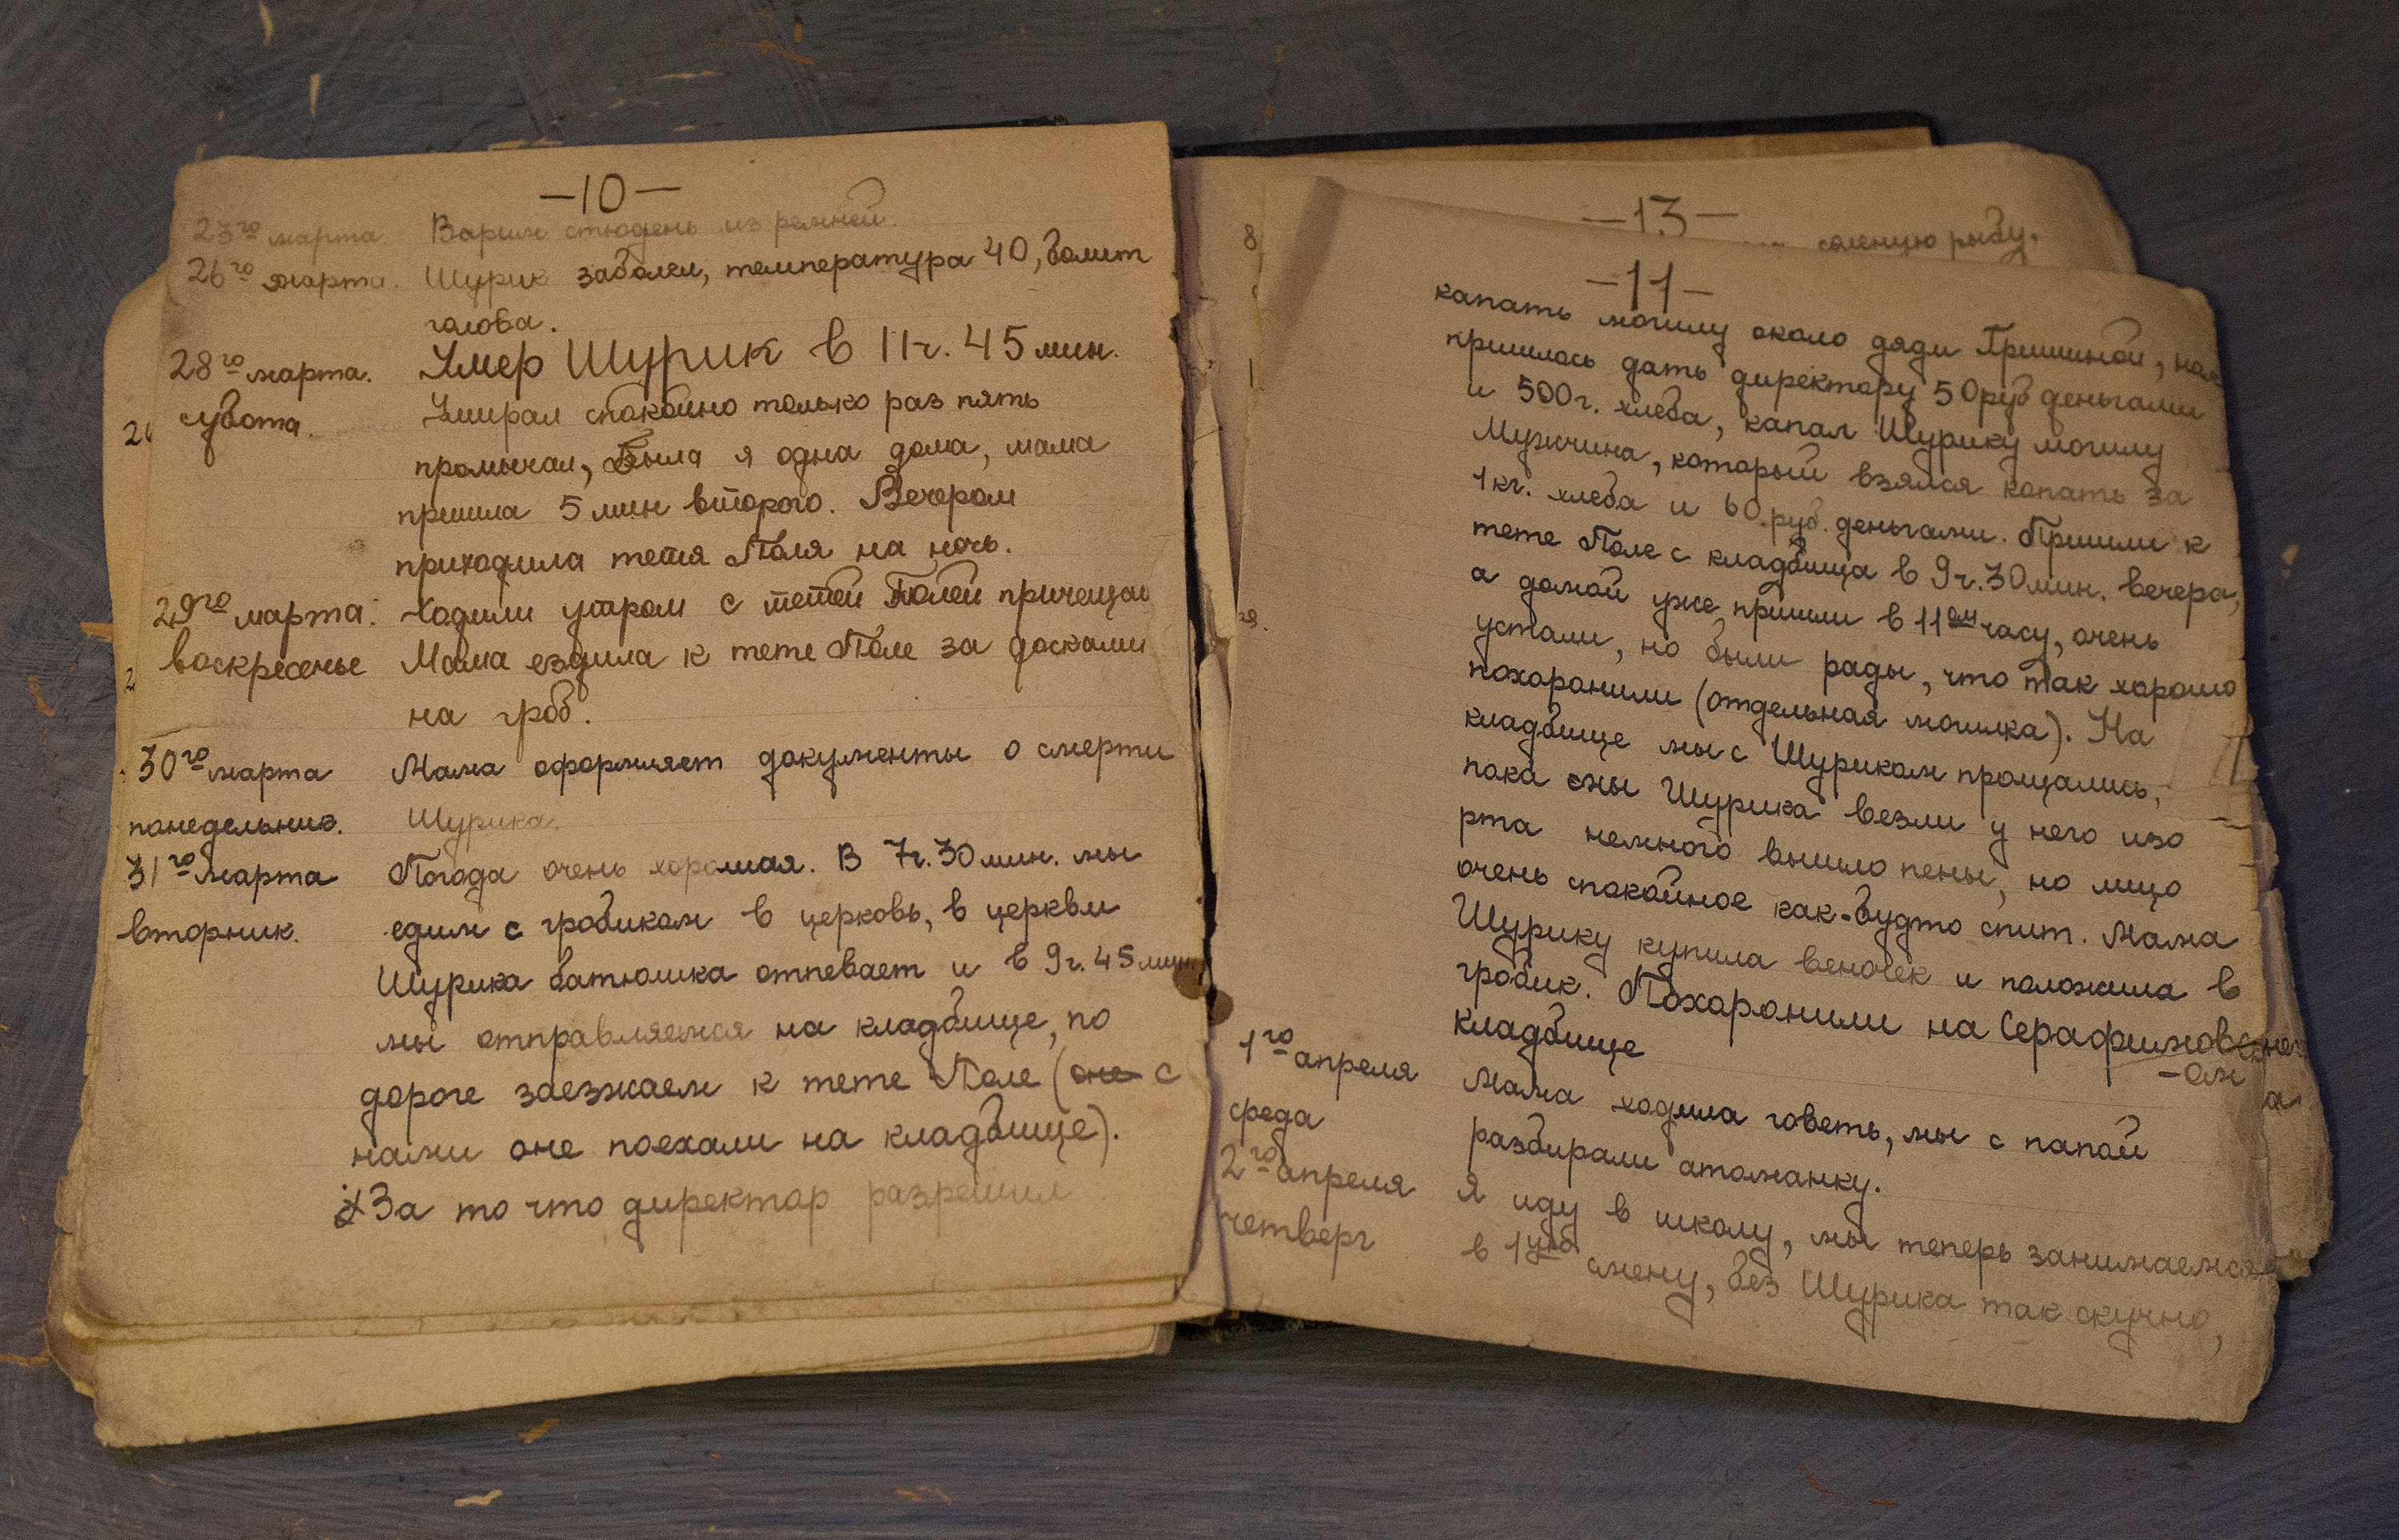 —10—
23го марта Варим стюдень из ремней.
26го марта. Шурик заболел, температура 40, болит
голова.
28го марта. Умер Шурик в 11ч. 45 мин.
субота. Умирал спокойно только раз пять
промычал, была я одна дома, мама
пришла 5 мин второго. Вечером
приходила тетя Поля на ночь.
29го марта. Ходили утром с тетей Полей
воскресенье Мама ездила к тете Поле за досками
на гроб.
30го марта Мама оформляет документы о смерти
понедельник. Шурика.
31го марта Погода очень хорошая. В 7ч. 30 мин. мы
вторник. едим с гробиком в церковь, в церкви
Шурика батюшка отпевает и в 9ч. 45 мин
мы отправляемся на кладбище, по
дороге заезжаем к тете Поле (оне с
нами оне поехали на кладбище).
За то что директор разрешил
—13—
соленую рыбу,
—11—
капать могилу около дяди Гришиной, нам
пришлось дать директору 50 руб деньгами
и 500г. хлеба, капал Шурику могилу
Мужчина, который взялся копать за
1 кг. хлеба и 60 руб. деньгами. Пришли к
тете Поле с кладбища в 9ч. 30 мин. вечера,
а домой уже пришли в 11ом часу, очень
устали, но были рады, что так хорошо
похоронили (отдельная могилка). На
кладбище мы с Шуриком прощались,
пока мы Шурика везли у него изо
рта немного вышло пены, но лицо
очень спокойное как-будто спит. Мама
Шурику купила веночек и положила в
гробик. Похоронили на Серафимовском
кладбище
1го апреля Мама ходила говеть, мы с папой
среда разбирали атоманку.
2го апреля Я иду в школу, мы теперь занимаемся
четверг в 1ую смену, без Шурика так скучно,